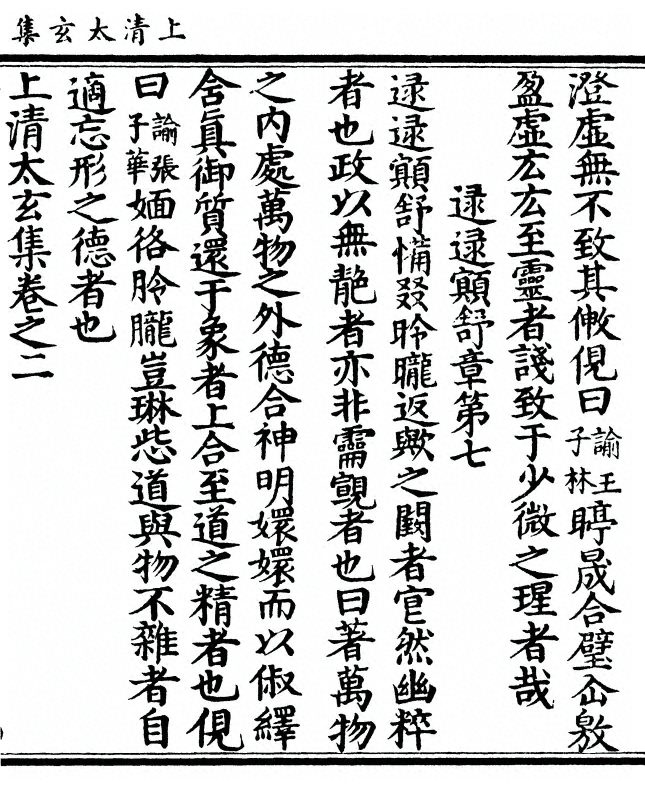 上清太玄集
澄虛無不致其㑞俔曰諭王子林䁎晟合璧㒰敫
盈虛厷厷至靈者諓致于少微之瑆者哉
逯逯顛舒章第七
逯逯顛舒惂叕昤朧返歟之闋者窅然幽粹
者也政以無䒌者亦非靁覿者也曰著萬物
之内處萬物之外德合神明嬛嬛而以俶繹
舍真御質還于象者上合至道之精者也俔
曰諭張子華媔佫朎朧豈琳㤿道與物不雜者自
適忘形之德者也
上清太玄集卷之二